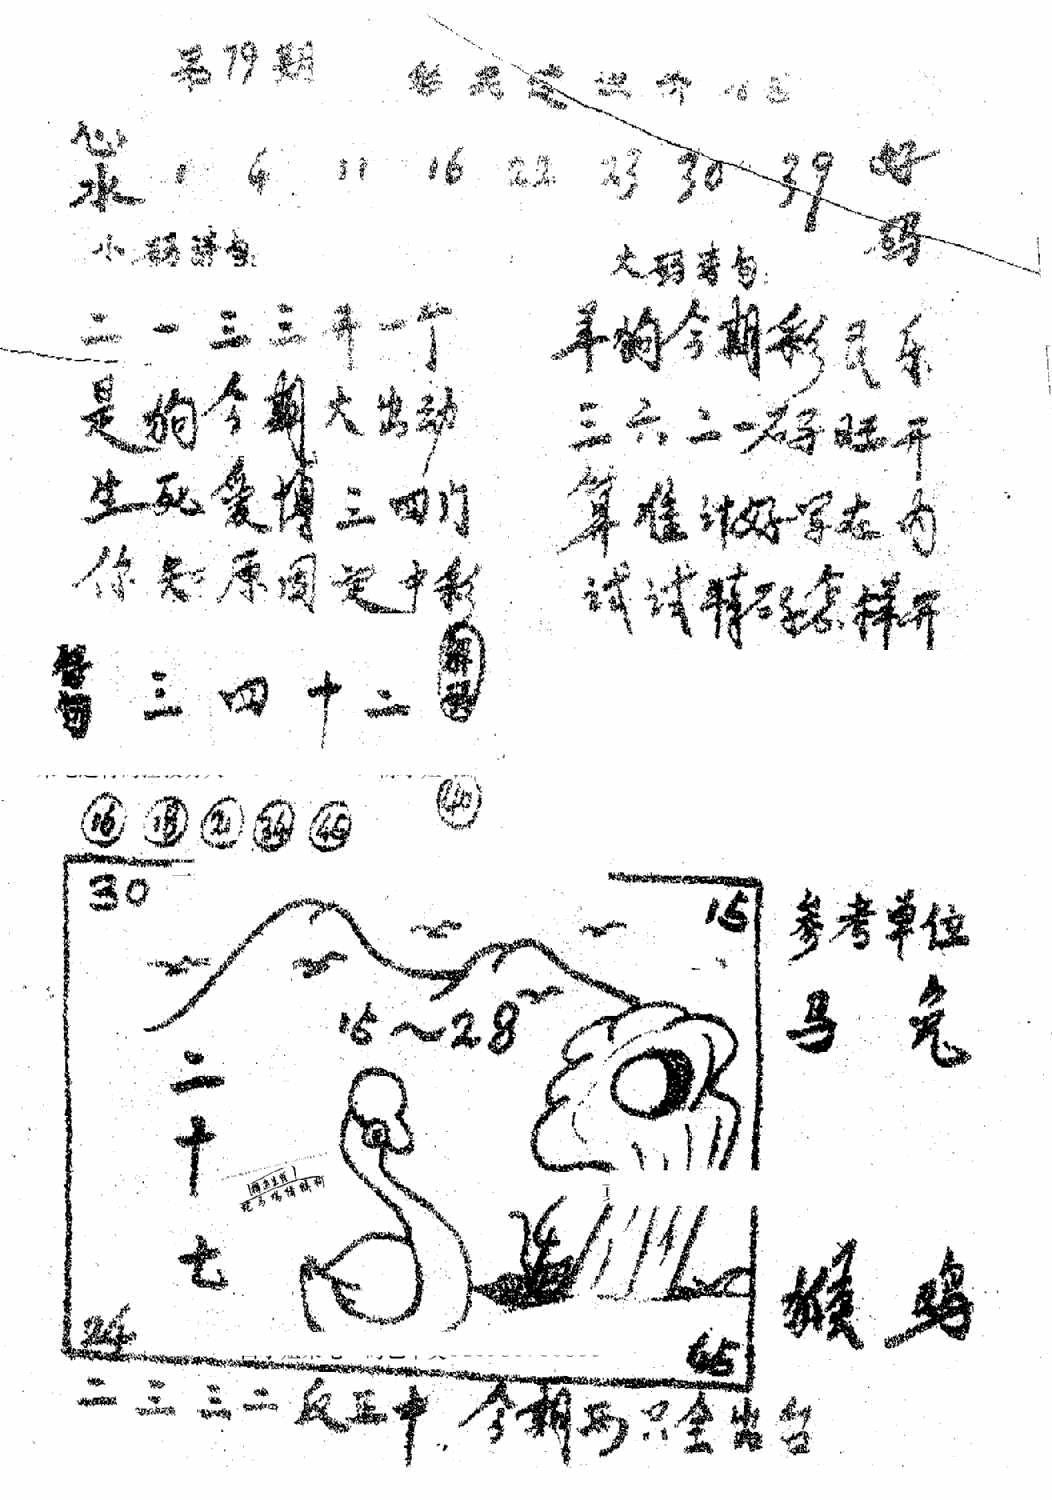 第79期
心水 1 4 11 16 22 23 30 39 好码
小码诗句:
二一三三开一个
是狗今期大出动
生死爱博三四门
你知原因定中彩
大码诗句:
羊狗今期彩民乐
三六二一码旺开
算准计好字在内
试试精码怎样开
三四十二
40
16 18 21 34 40
30
15
15~28
二十七
24
45
参考单位
马 兔
猴 鸡
二三三二反正中.今期两只全出台